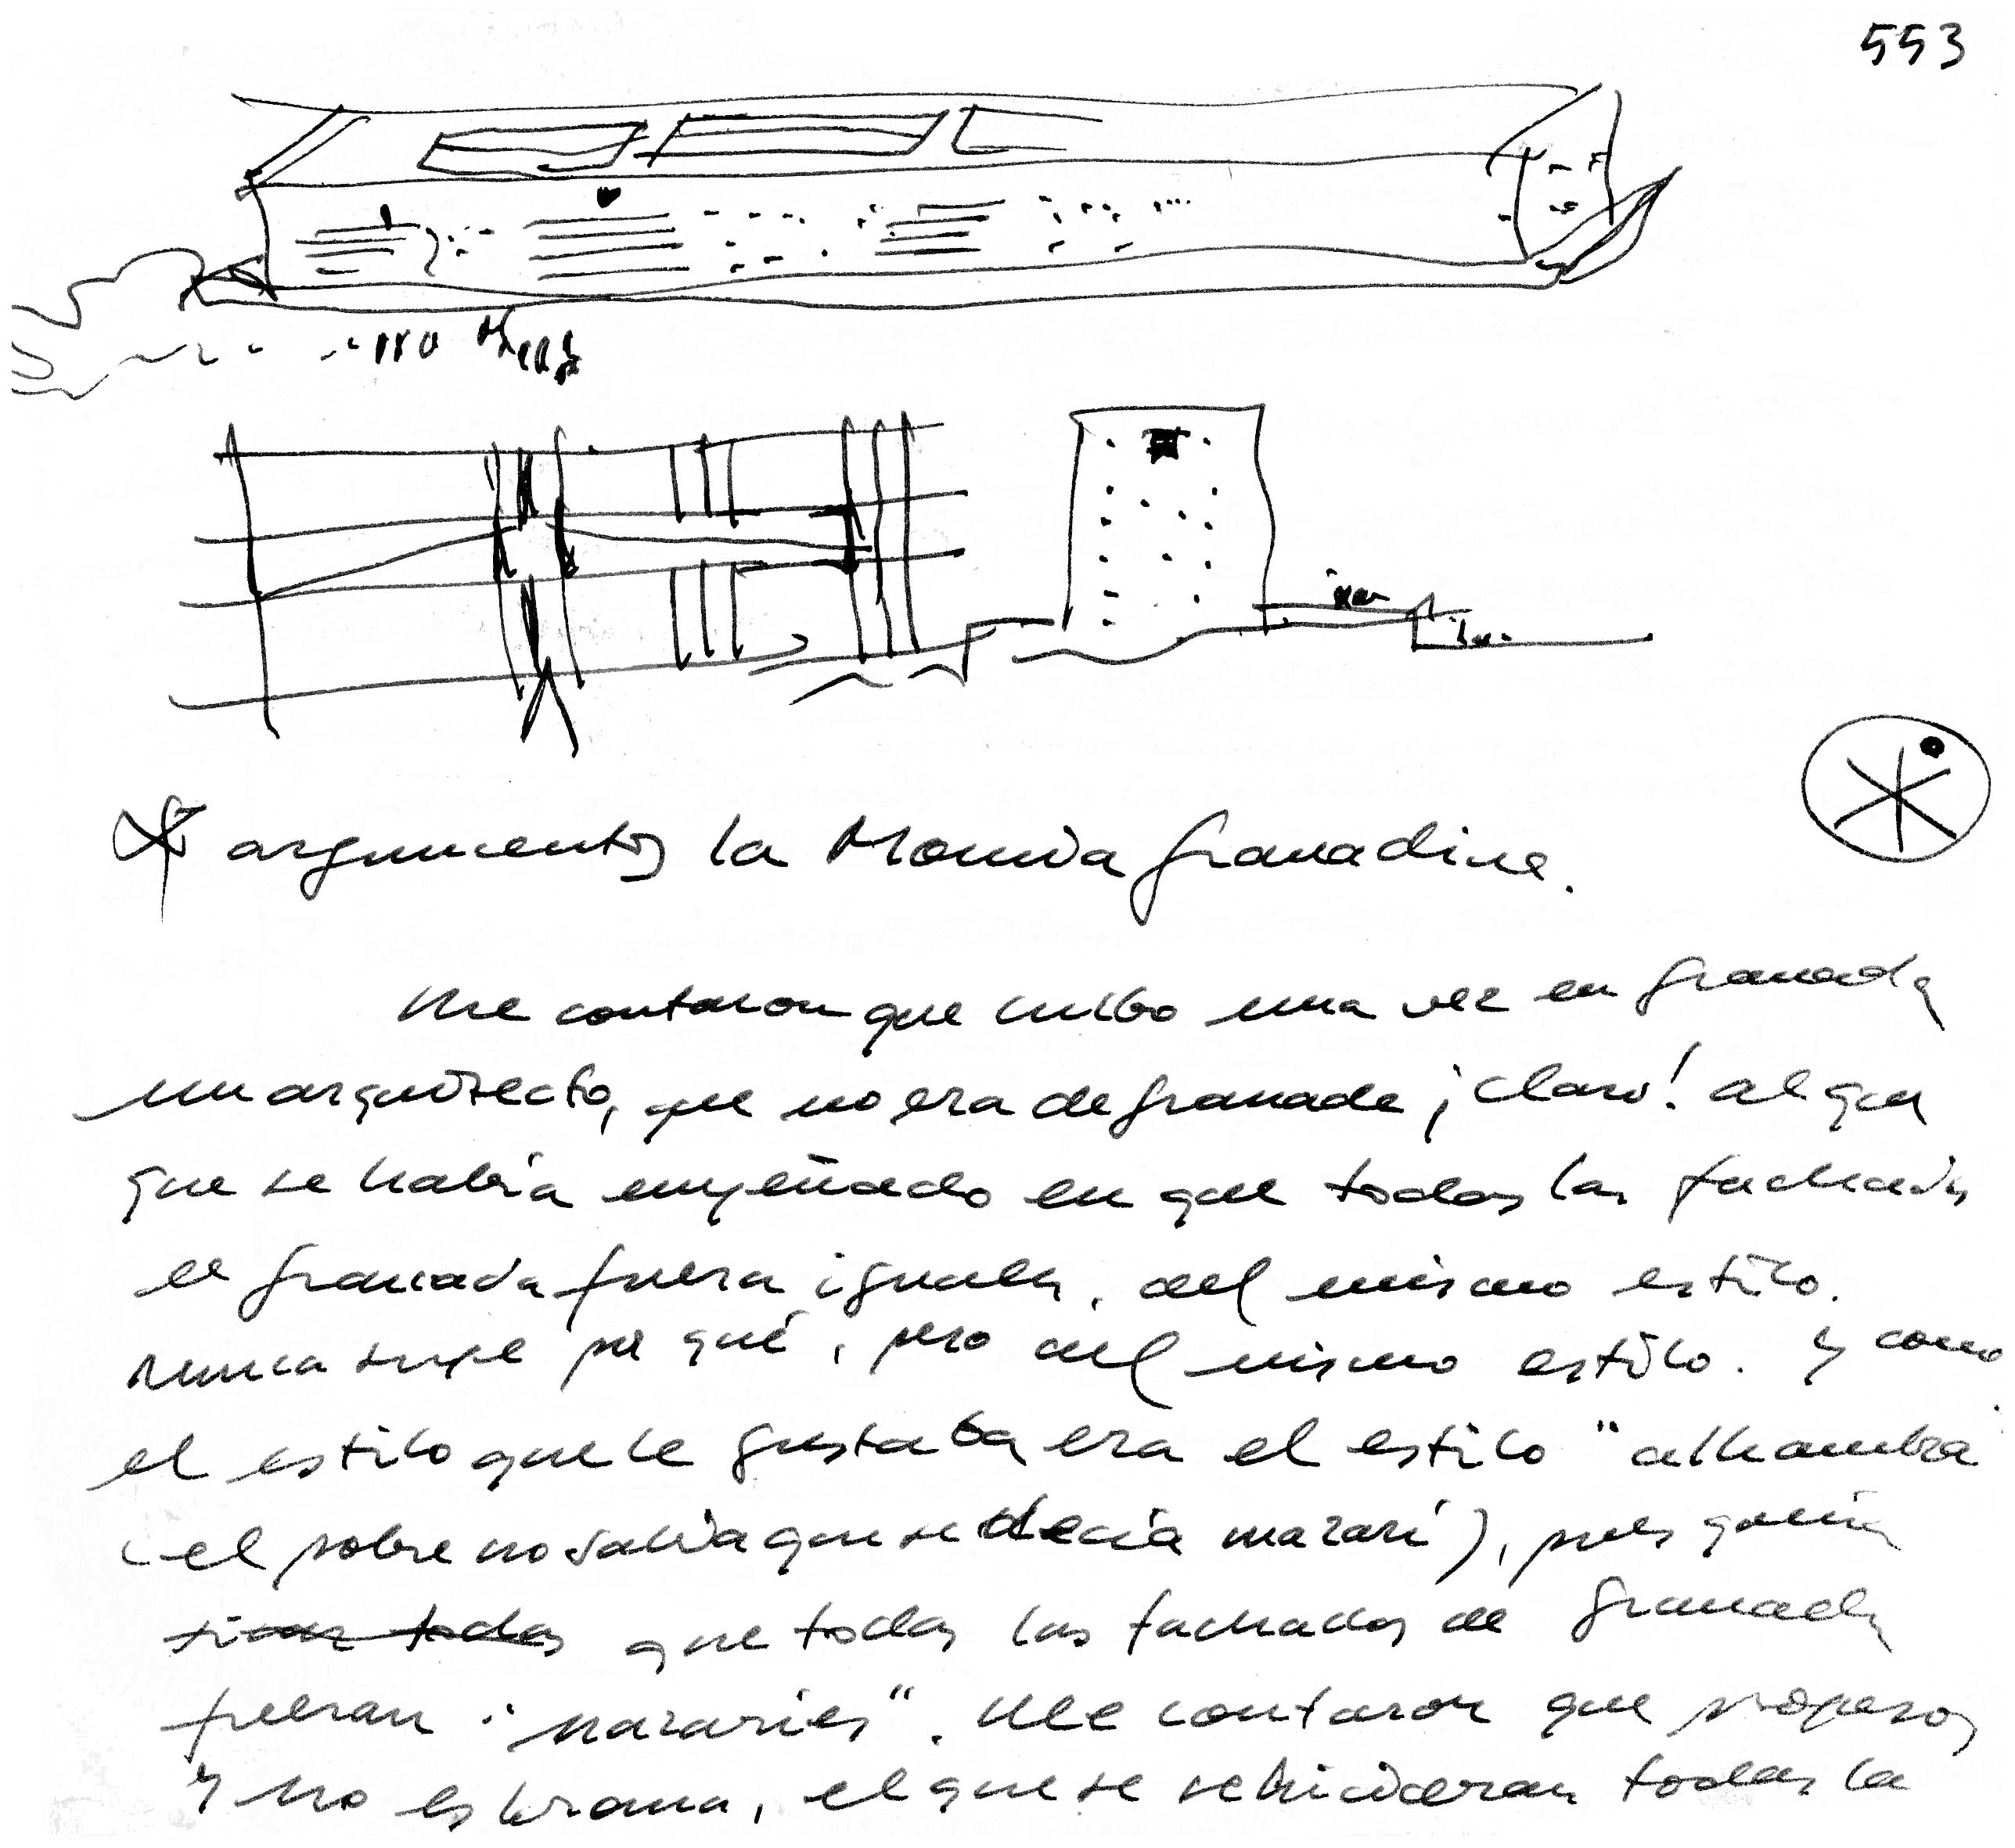 553
argumentos la Movida Granadina.
Me contaron que hubo una vez en Granada
un arquitecto, que no era de Granada ¡claro! al que
que se había empeñado en que todas las fachadas
de Granada fuera iguales, del mismo estilo.
nunca supe por qué, pero del mismo estilo. Y como
el estilo que le gustaba era el estilo "alhambra"
(el pobre no sabía que se decía nazarí), pues quería
que todas las fachadas de Granada
fueran "nazaríes". Me contaron que propuso,
y no es broma, el que se se hicieran todas la